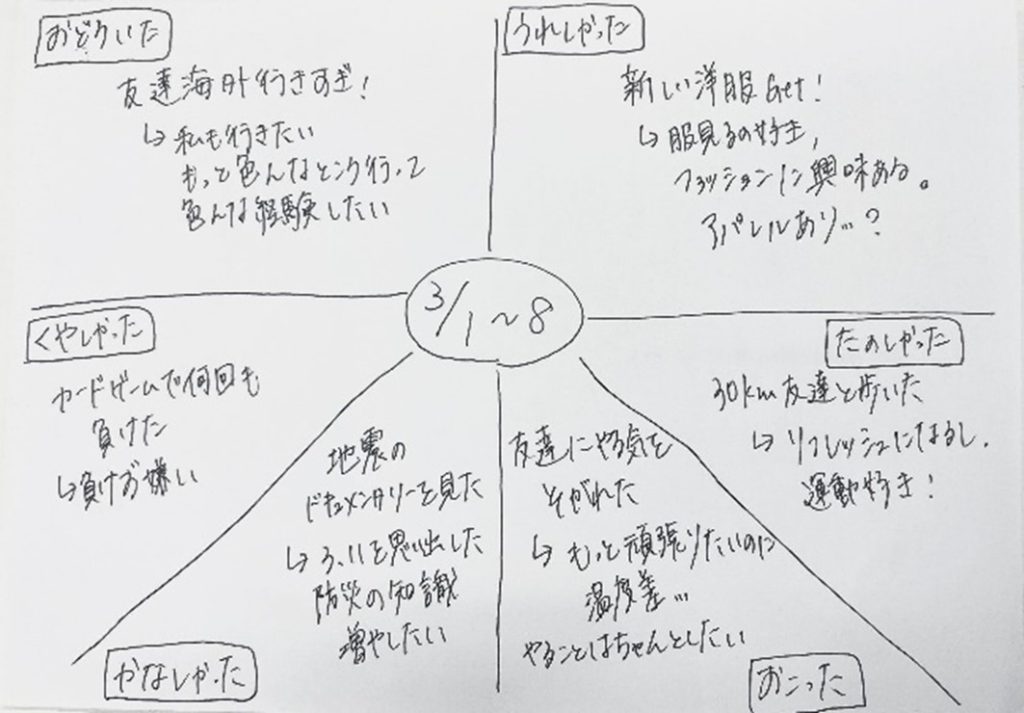 おどろいた
友達海外行きすぎ!
↳私も行きたい
もっと色んなところ行って
色んな経験したい
うれしかった
新しい洋服Get!
↳服見るの好き,
ファッションに興味ある。
アパレルあり…?
3/1~8
くやしかった
カードゲームで何回も
負けた
↳負けず嫌い
たのしかった
30km友達と歩いた
↳リフレッシュになるし,
運動好き!
地震の
ドキュメンタリーを見た
↳3.11を思い出した
防災の知識
増やしたい
かなしかった
友達にやる気を
そがれた
↳もっと頑張りたいのに
温度差…
やることはちゃんとしたい
おこった